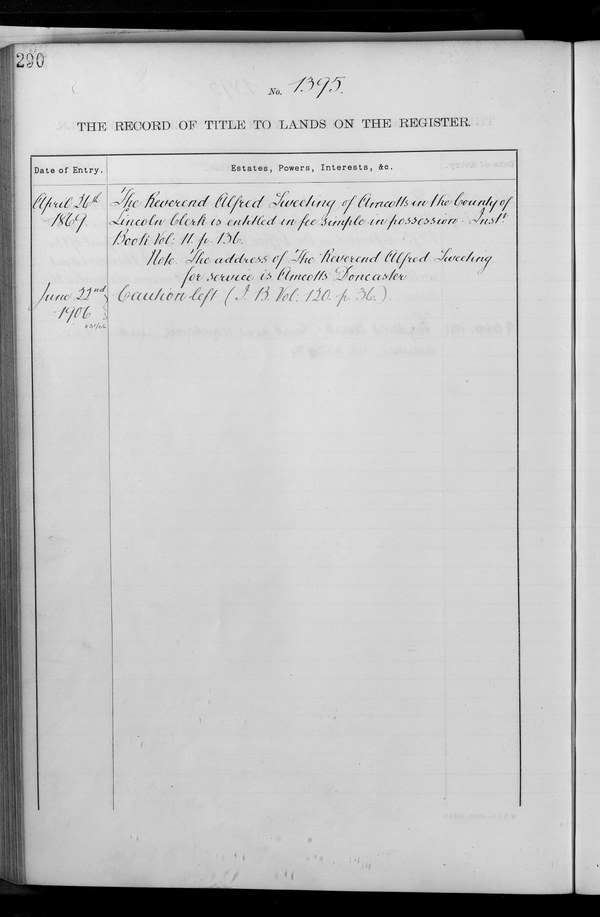 290
No. 1395.
THE RECORD OF TITLE TO LANDS ON THE REGISTER.
Date of Entry.
Estates, Powers, Interests, &c.
April 26th
1869
The Reverend Alfred Tweeting of Amcotts in the County of
Lincoln Clerk is entitled in fee simple in possession. Inst
Book Vol: 11. p. 136.
Note. The address of The Reverend Alfred Tweeting
for service is Amcotts Doncaster
June 22nd
1906
Caution left (I. B. Vol. 120. p. 36.)